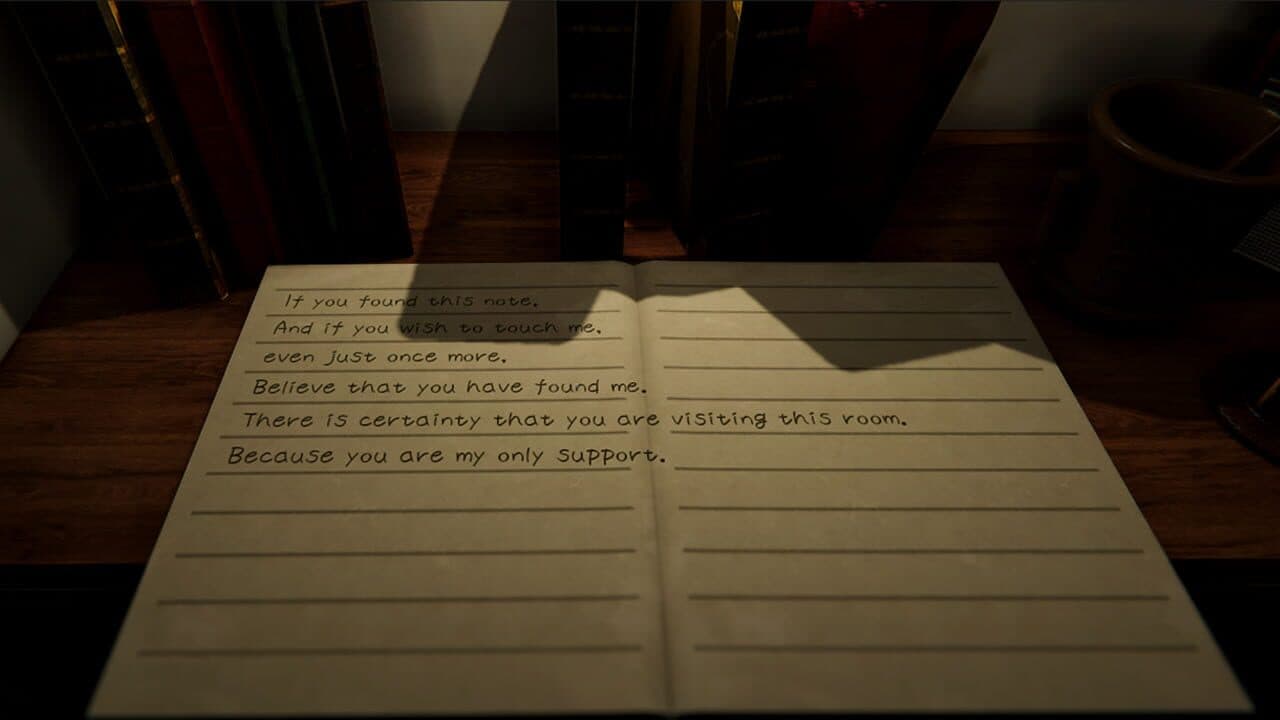 If you found this note.
And if you wish to touch me.
even just once more.
Believe that you have found me.
There is certainty that you are visiting this room.
Because you are my only support.